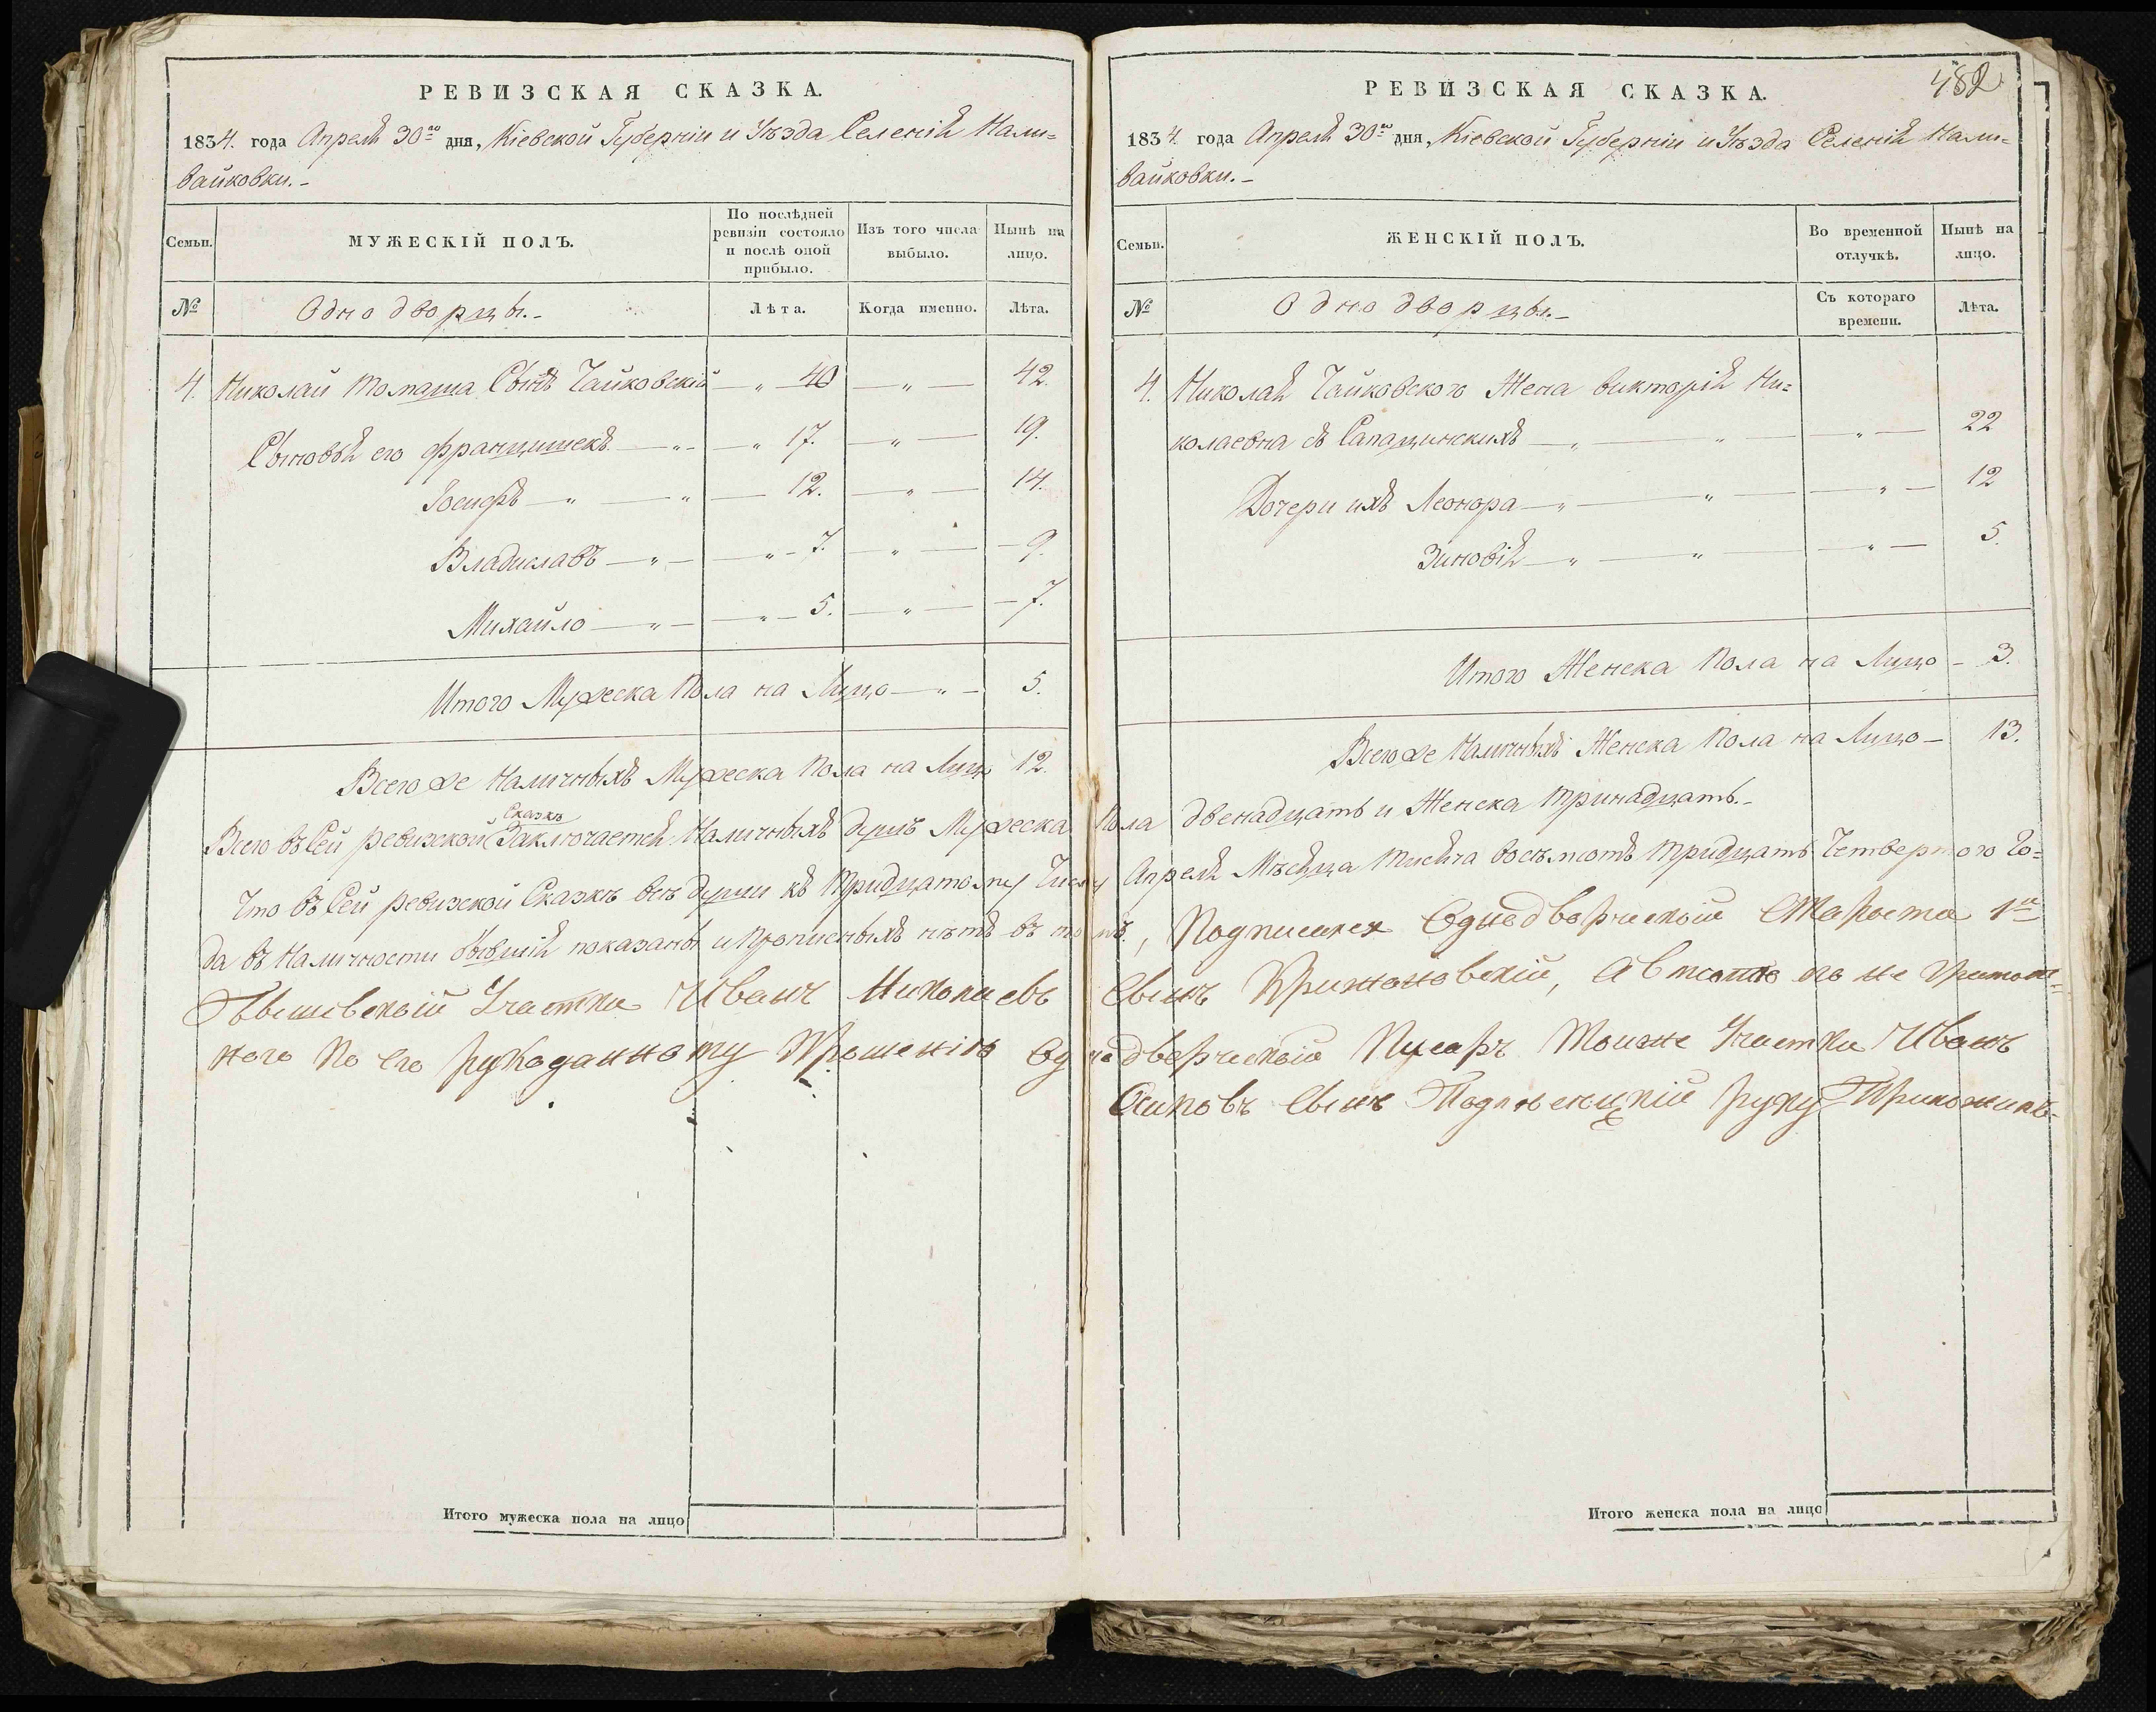 РЕВИЗСКАЯ СКАЗКА.
1834. года Апреля 30го дня, Кіевской Губерніи и Уѣзда Селенія Нали=
вайковки.-
Семьи.
МУЖЕСКІЙ ПОЛЪ.
По послѣдней ревизіи состояло и послѣ оной прибыло.
Изъ того числа выбыло.
Нынѣ на лицо.
№
Однодворцы.-
Лѣта.
Когда именно.
Лѣта.
4. Николай Томаша Сынъ Чайковскій — „ — 40 — „ — 42.
Сыновья его Францишекъ — „ — „ 17. — „ — 19.
Іосифъ — „ — „ — 12. — „ — 14.
Владиславъ — „ — „ — 7. — „ — 9.
Михайло — „ — „ — 5. — „ — 7.
Итого Мужеска Пола на Лицо — „ — 5.
Всего же Наличныхъ Мужеска Пола на Лицо 12.
РЕВИЗСКАЯ СКАЗКА.
482
1834 года Апреля 30го дня, Кіевской Губерніи и Уѣзда Селенія Нали=
вайковки.-
Семьи.
ЖЕНСКІЙ ПОЛЪ.
Во временной отлучкѣ.
Нынѣ на лицо.
№
Однодворцы.-
Съ котораго времени.
Лѣта.
4. Николая Чайковского Жена Викторія Ни=
колаевна съ Сапацинскихъ — „ — „ — „ — 22
Дочери ихъ Леонора — „ — „ — „ — 12
Зиновія — „ — „ — „ — 5.
Итого Женска Пола на Лицо - 3.
Всего же Наличныхъ Женска Пола на Лицо - 13.
Сказкѣ
Всего въ Сей ревизской Заключается Наличныхъ душъ Мужеска Пола двенадцать и Женска тринадцать.-
Что въ Сей ревизской Сказкѣ всѣ души къ тридцатому Числу Апреля Мѣсяца тисяча восѣмсотъ тридцать Четвертого Го=
да въ Наличности бывшія показаны и прописныхъ нѣтъ въ томъ, Подписался Однодворческій Староста 1го
Участка Иванъ Николаевъ Сынъ Крижановскій, А вместо его не грамот=
ного По Его рукоданному Прошенію Однодворческій Писарь Тоиже Участка Иванъ
Осиповъ Сынъ руку Приложилъ.
Итого мужеска пола на лицо
Итого женска пола на лицо